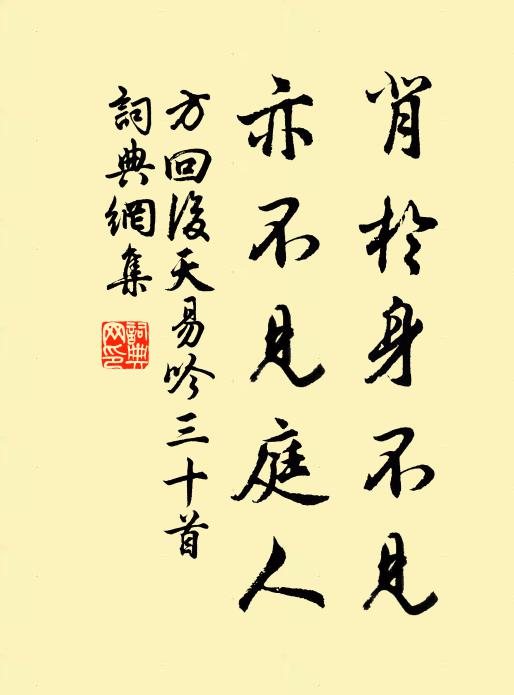 肖於身不見
亦不見庭人
方回後天易吟三十首
詞典網集
詞典網印